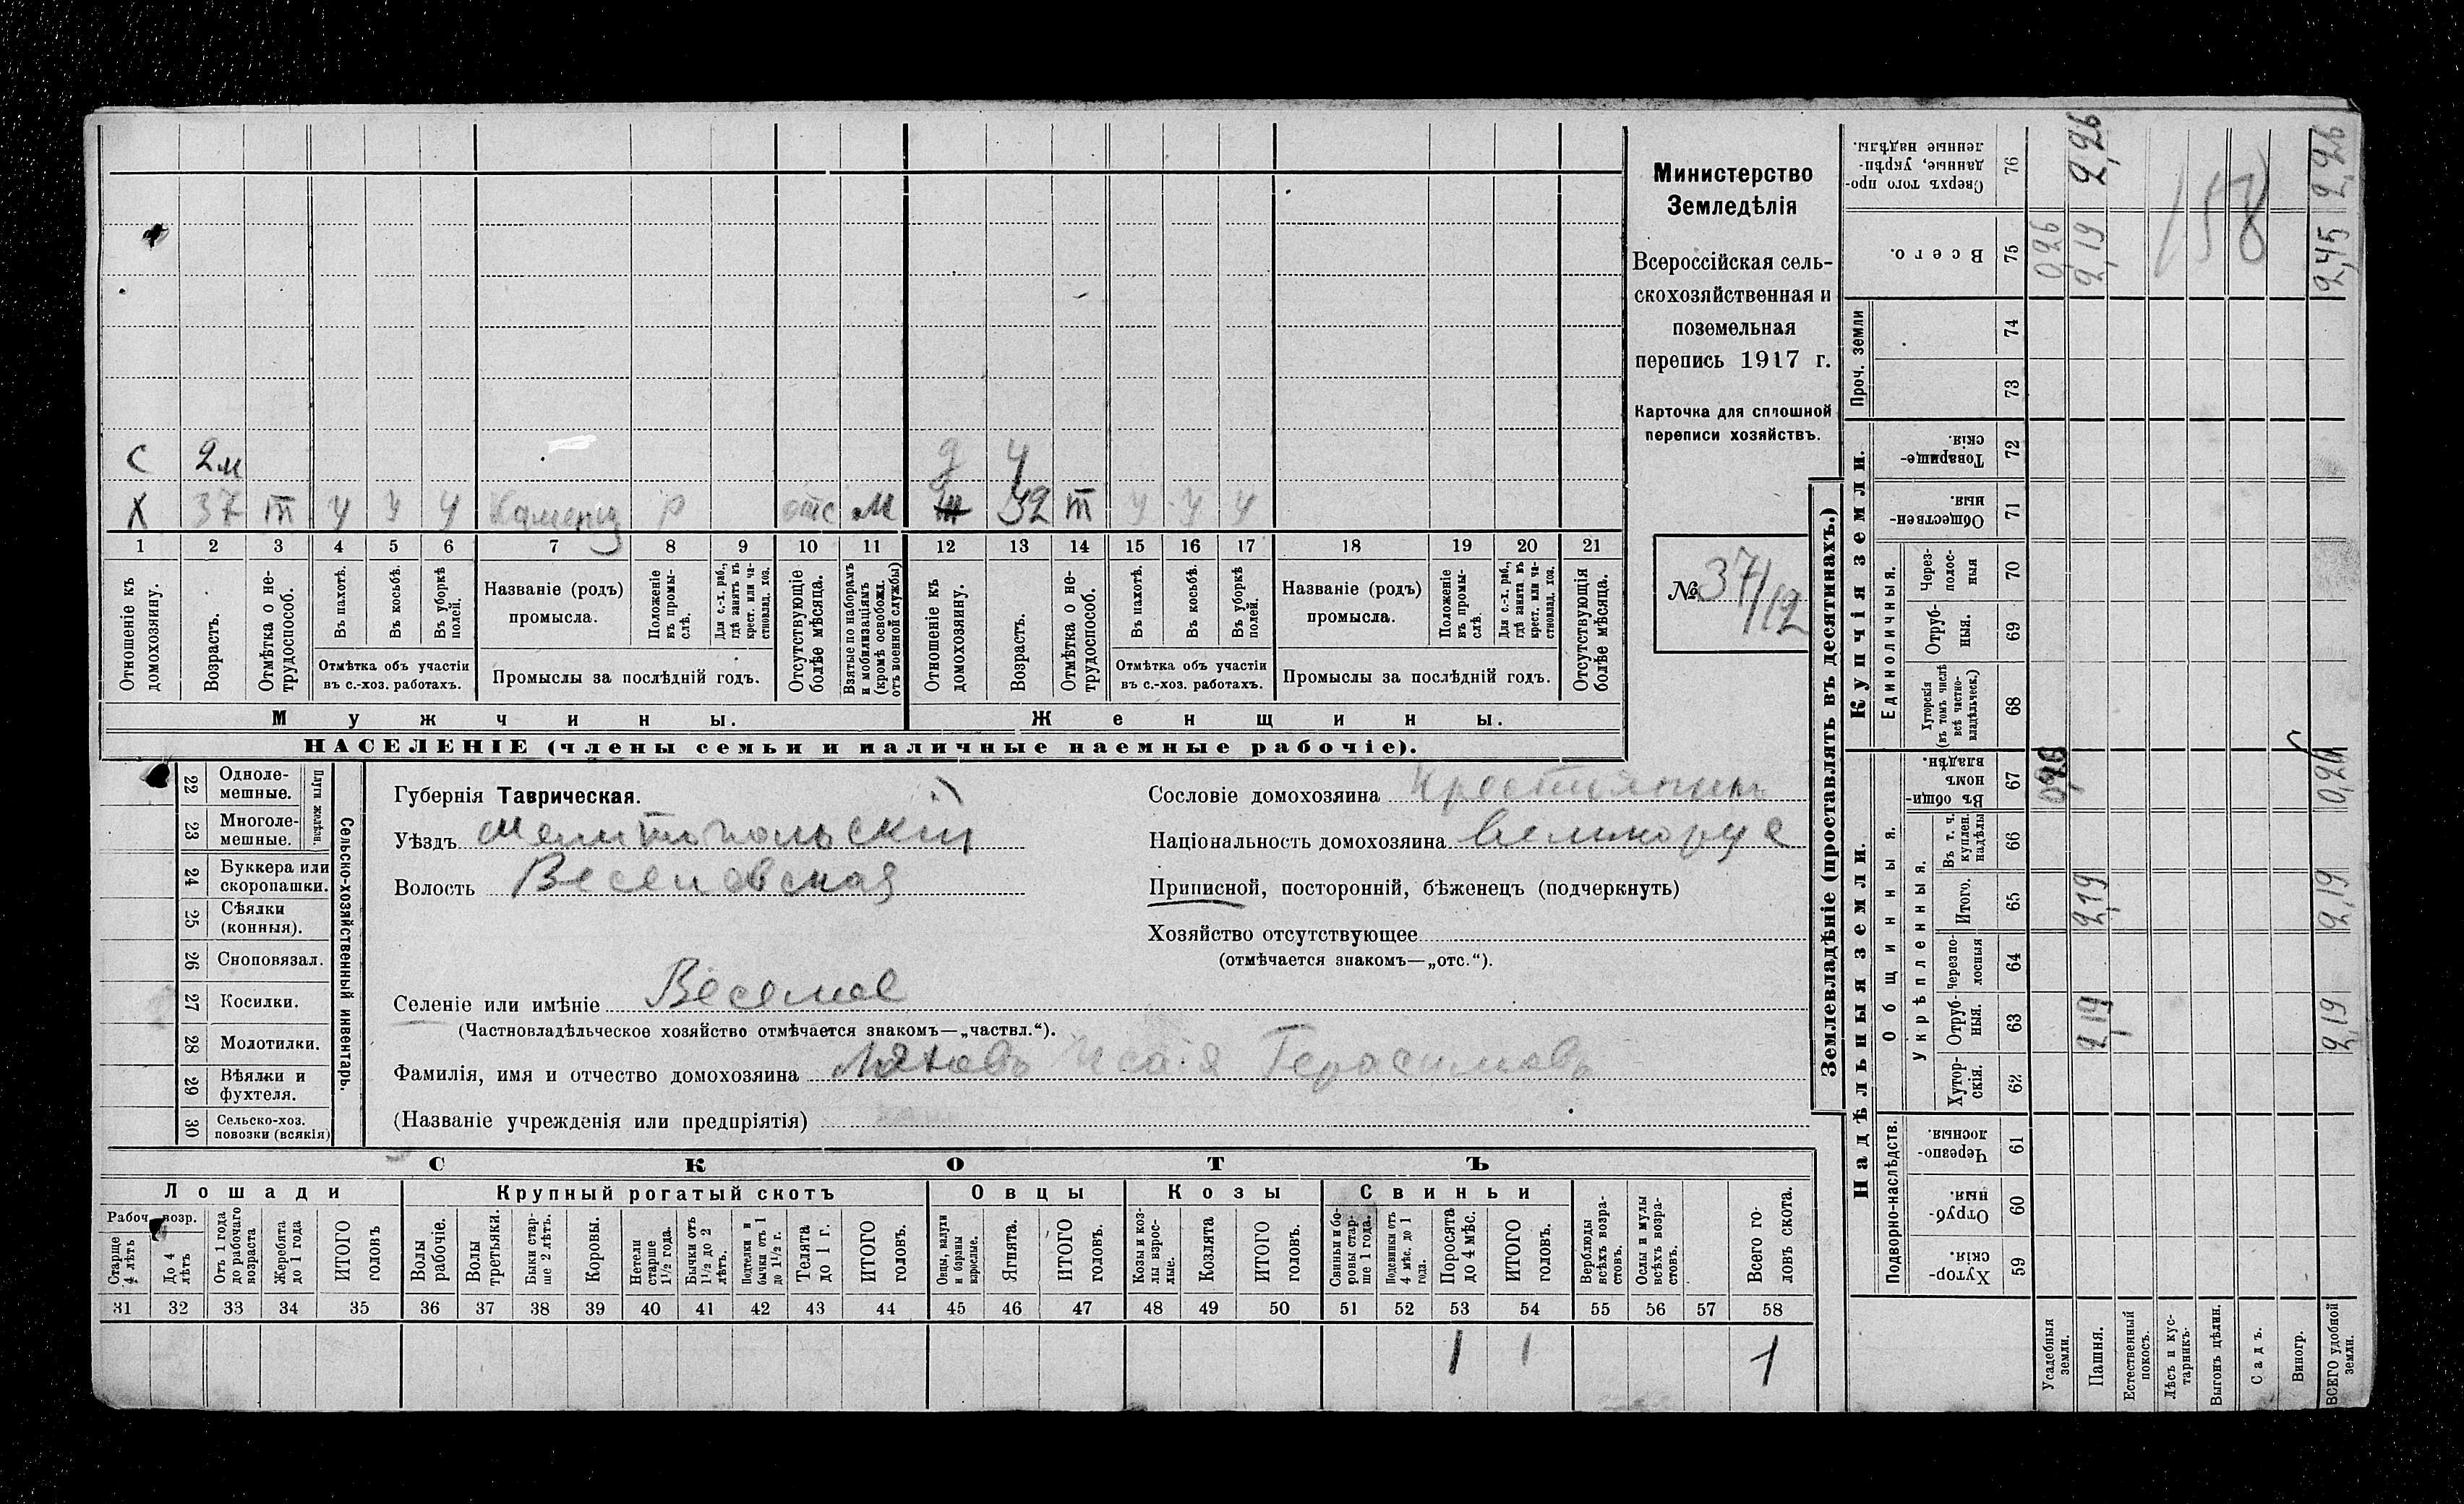 С 2м д 4
Х 37 т у у у р отс м 32 т у у у
1 2 3 4 5 6 7 8 9 10 11 12 13 14 15 16 17 18 19 20 21
Отношеніе къ домохозяину.
Возрастъ.
Отмѣтка о нетрудоспособ.
Въ пахотѣ.
Въ косьбѣ.
Въ уборкѣ полей.
Отмѣтка объ участіи въ с.-хоз. работахъ.
Названіе (родъ) промысла.
Положеніе въ промыслѣ.
Для с.-х. раб., гдѣ занятъ въ крест. или частновлад. хоз.
Промыслы за послѣдній годъ.
Отсутствующіе болѣе мѣсяца.
Взятые по наборамъ и мобилизаціямъ (кромѣ освобожд. отъ военной службы)
Отношеніе къ домохозяину.
Возрастъ.
Отмѣтка о нетрудоспособ.
Въ пахотѣ.
Въ косьбѣ.
Въ уборкѣ полей.
Отмѣтка объ участіи въ с.-хоз. работахъ.
Названіе (родъ) промысла.
Положеніе въ промыслѣ.
Для с.-х. раб., гдѣ занятъ въ крест. или частновлад. хоз.
Промыслы за послѣдній годъ.
Отсутствующія болѣе мѣсяца.
Мужчины. Женщины.
НАСЕЛЕНІЕ (члены семьи и наличные наемные рабочіе).
Министерство
Земледѣлія
Всероссійская сель-
скохозяйственная и
поземельная
перепись 1917 г.
Карточка для сплошной
переписи хозяйствъ.
№ 37/12
22 Одноле-
мешные.
Плуги желѣзн.
23 Многоле-
мешные.
24 Буккера или
скоропашки.
25 Сѣялки
(конныя).
26 Сноповязал.
27 Косилки.
28 Молотилки.
29 Вѣялки и
фухтеля.
30 Сельско-хоз.
повозки (всякія)
Сельско-хозяйственный инвентарь.
Губернія Таврическая.
Уѣздъ Мелитопольскій
Волость Веселовская
Селеніе или имѣніе Веселое
(Частновладѣльческое хозяйство отмѣчается знакомъ—„частвл.“).
Фамилія, имя и отчество домохозяина Исаія Герасимовъ
(Названіе учрежденія или предпріятія)
Сословіе домохозяина Крестьянинъ
Національность домохозяина великорус
Приписной, посторонній, бѣженецъ (подчеркнуть)
Хозяйство отсутствующее
(отмѣчается знакомъ—„отс.“).
СКОТЪ
Лошади
Крупный рогатый скотъ
Овцы
Козы
Свиньи
Рабоч. возр.
Старше 4 лѣтъ
До 4 лѣтъ
Отъ 1 года до рабочаго возраста
Жеребята до 1 года
ИТОГО головъ
Волы рабочіе.
Волы третьяки.
Быки старше 2 лѣтъ.
Коровы.
Нетели старше 1 1/2 года.
Бычки отъ 1 1/2 до 2 лѣтъ.
Подтелки и бычки отъ 1 до 1 1/2 г.
Телята до 1 г.
ИТОГО головъ.
Овцы, валухи и бараны взрослые.
Ягнята.
ИТОГО головъ.
Козы и козлы взрослые.
Козлята
ИТОГО головъ.
Свиньи и боровы старше 1 года.
Подсвинки отъ 4 мѣс. до 1 года.
Поросята до 4 мѣс.
ИТОГО головъ.
Верблюды всѣхъ возрастовъ.
Ослы и мулы всѣхъ возрастовъ.
Всего головъ скота.
31 32 33 34 35 36 37 38 39 40 41 42 43 44 45 46 47 48 49 50 51 52 53 54 55 56 57 58
1 1 1
Землевладѣніе (проставлять въ десятинахъ.)
Надѣльныя земли.
Купчія земли.
Проч. земли
Подворно-наслѣдств.
Общинныя.
Укрѣпленныя.
Единоличныя.
59 Хуторскія.
60 Отрубныя.
61 Черезполосныя.
62 Хуторскія.
63 Отрубныя. 2,19 2,19
64 Черезполосныя
65 Итого. 2,19 2,19
66 Въ т. ч. куплен. надѣлы
67 Въ общинномъ владѣн. 0,26 0,26
68 Хуторскія (въ томъ числѣ всѣ частновладѣльческ.)
69 Отрубныя.
70 Черезполосныя
71 Общественныя.
72 Товарищескія.
73
74
75 Всего. 0,26 2,19 2,45
76 Сверхъ того проданные, укрѣпленные надѣлы. 2,26 2,26
158
Усадебныя земли.
Пашня.
Естественный покосъ.
Лѣсъ и кустарникъ.
Выгонъ цѣлин.
Садъ.
Виногр.
ВСЕГО удобной земли.